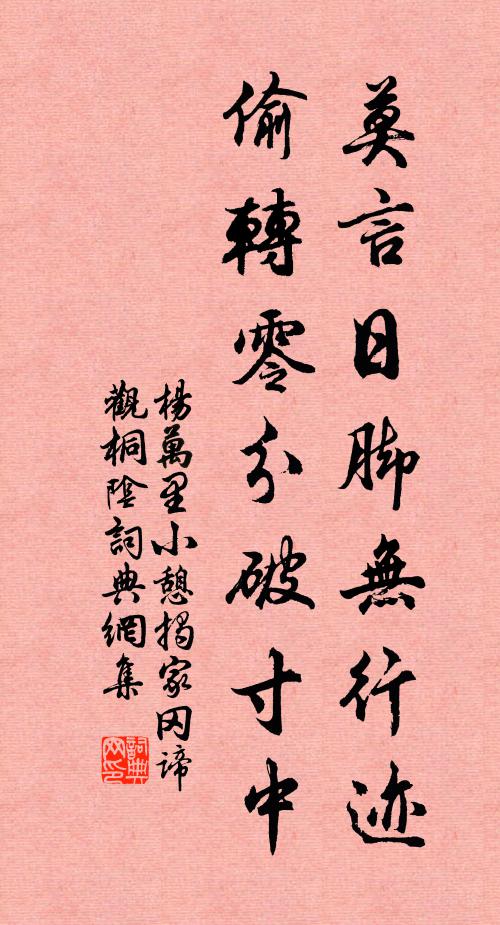 莫言日脚無行迹
偷轉零分破寸中
楊萬里小憩揭家冈諦
觀桐陰詞典網集
詞典网印